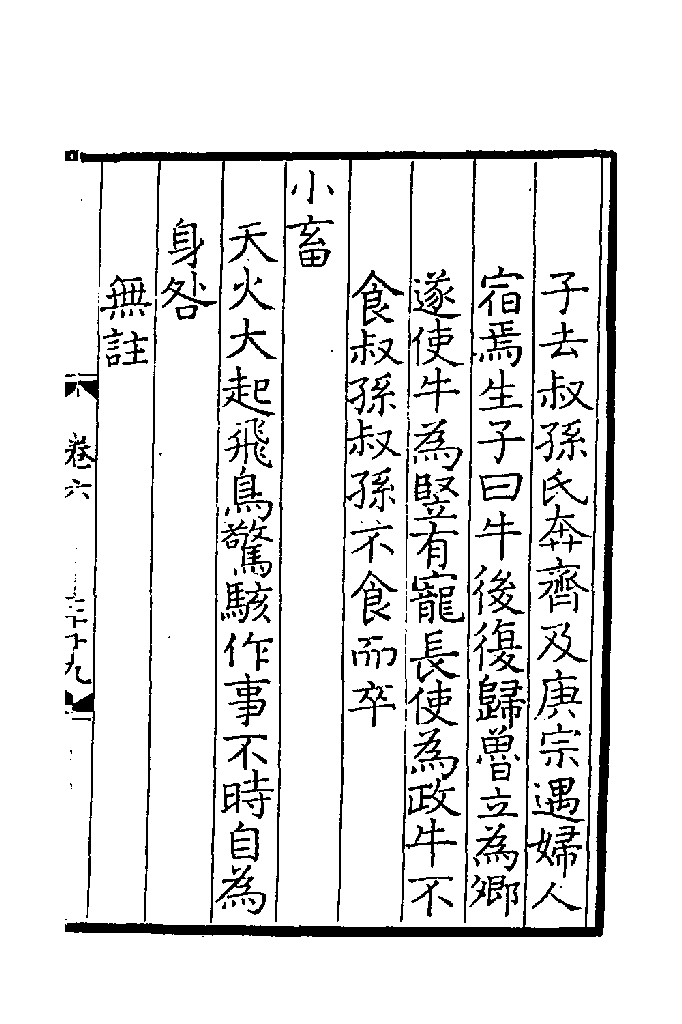 子去叔孫氏奔齊及庚宗遇婦人
宿焉生子曰牛後復歸魯立為鄉
遂使牛為豎有寵長使為政牛不
食叔孫叔孫不食而卒
小畜
天火大起飛鳥驚駭作事不時自為
身咎
無註
卷六